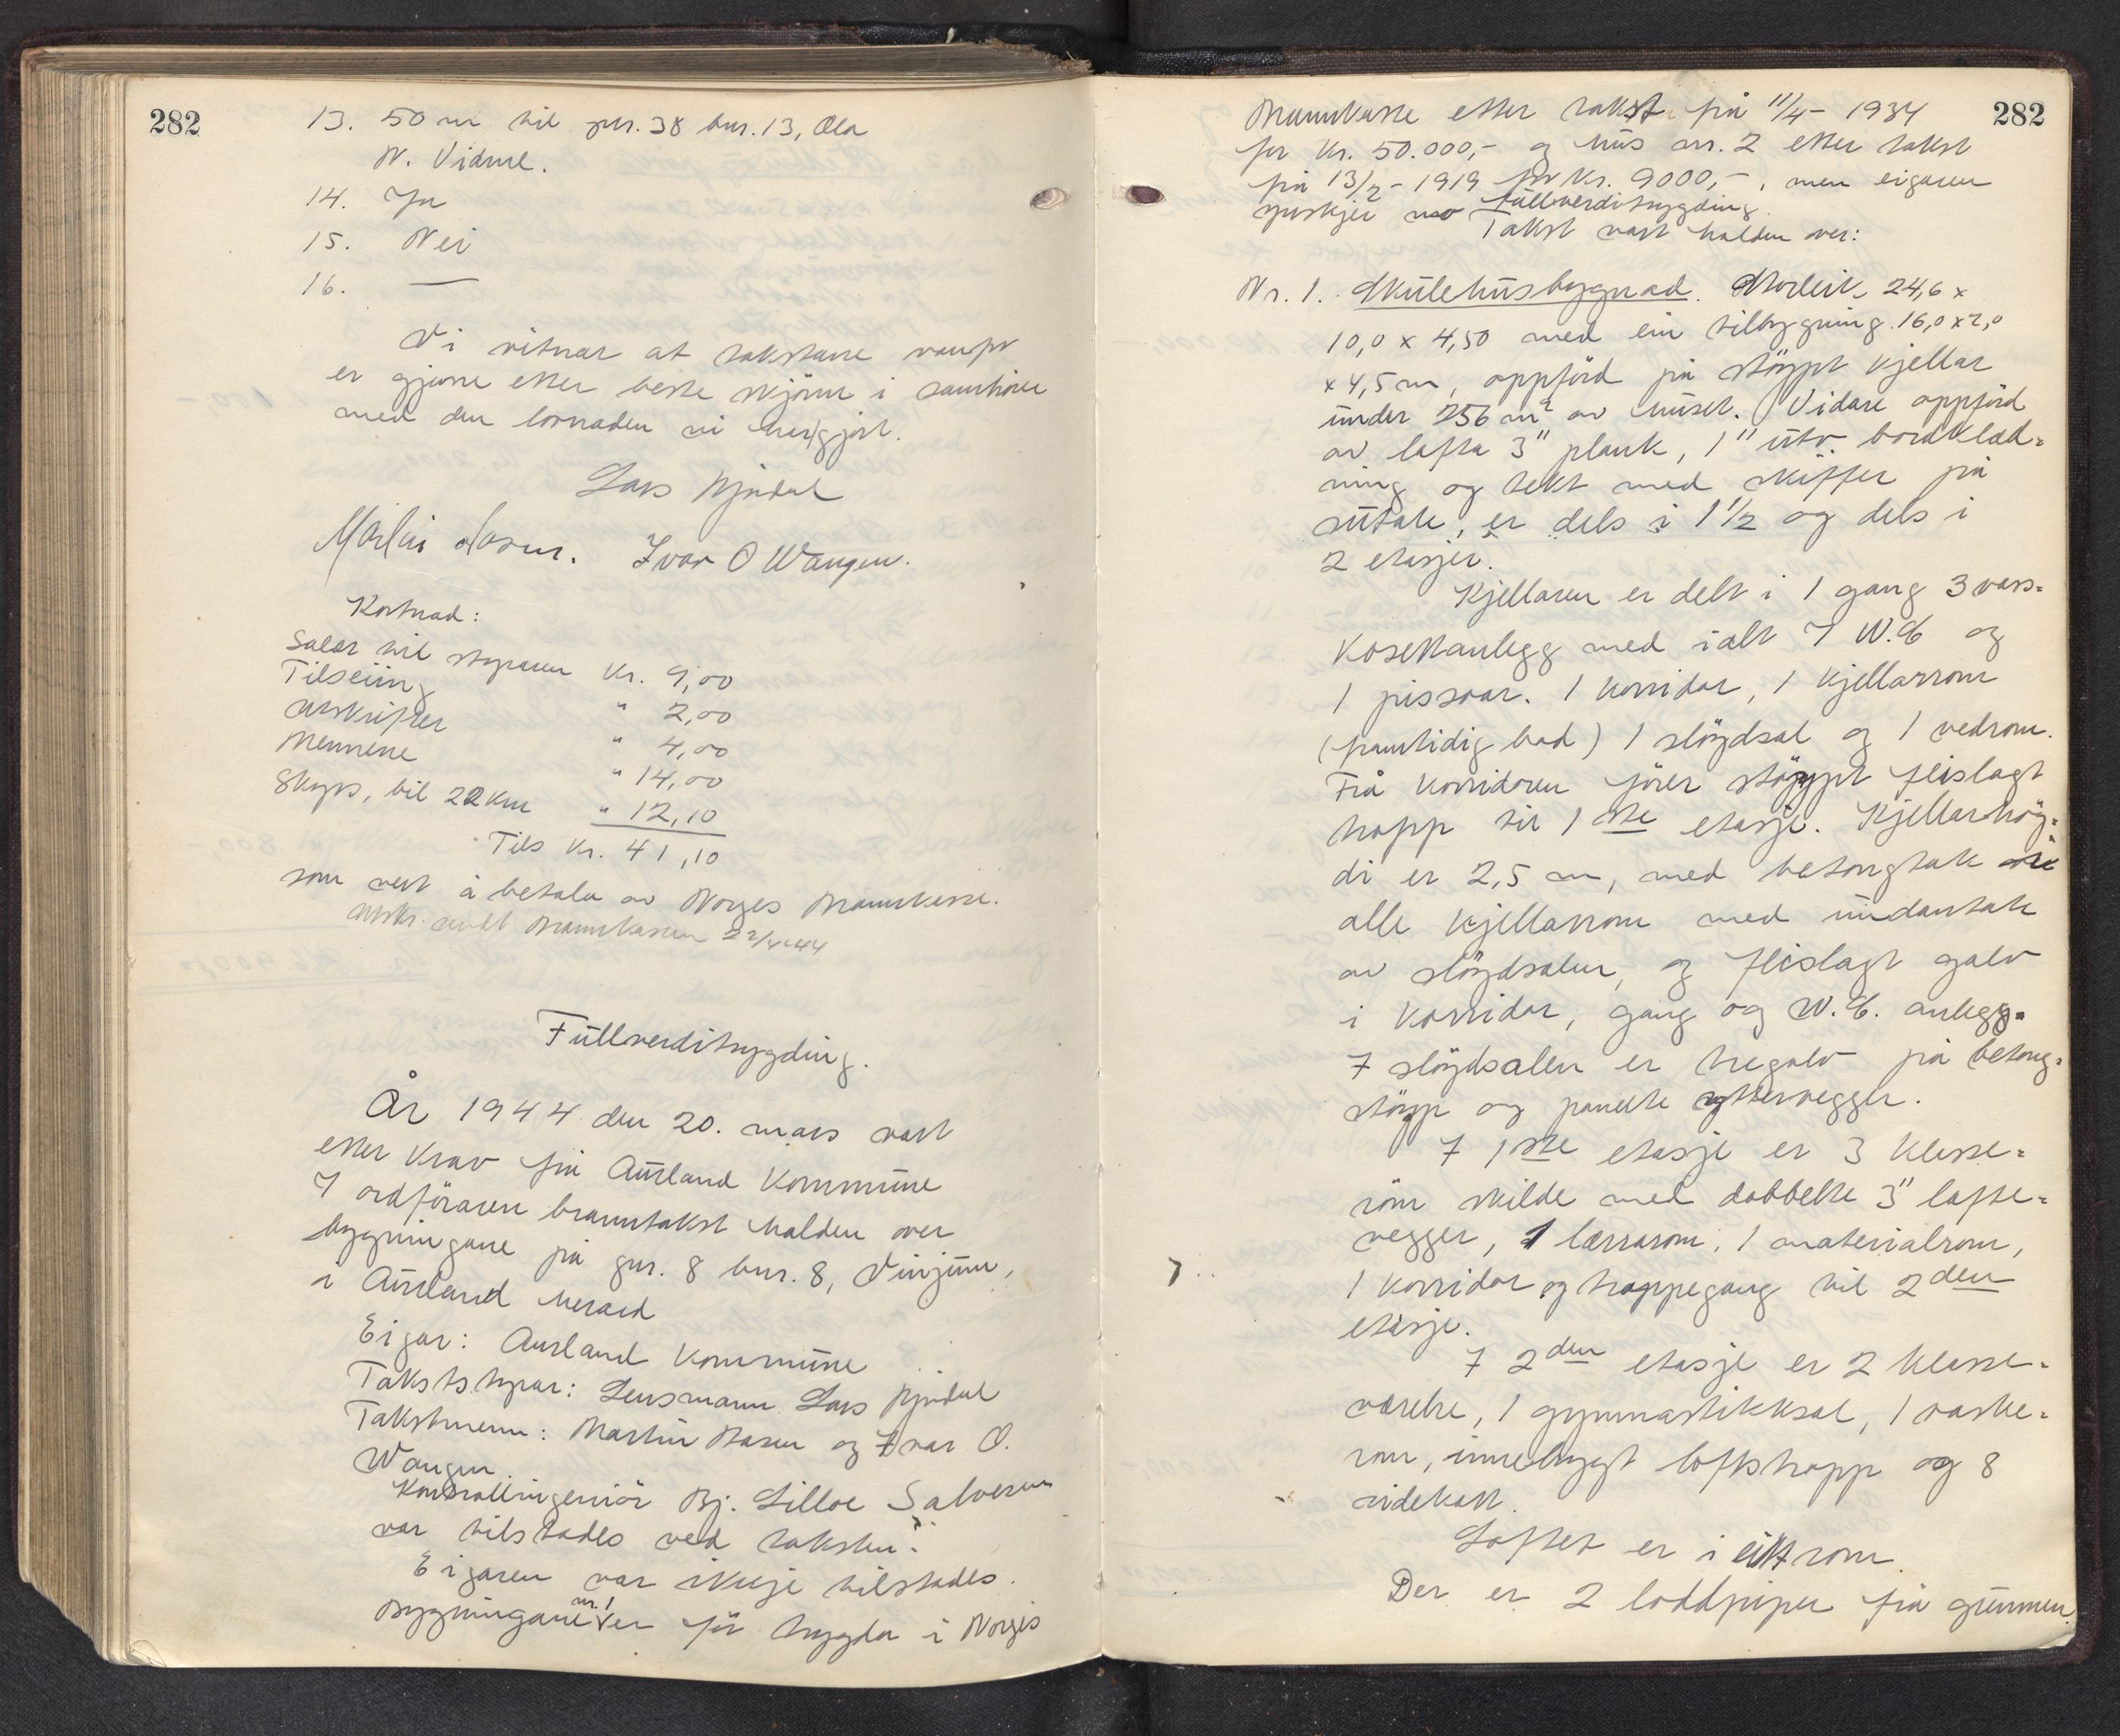 282
13. 50 m til gnr. 38 bnr. 13, Ola
N. Vidme.
14. Ja
15. Nei
16. —
Vi vitnar at takstane
er gjorne etter beste skjönn i samhöve
med den lovnaden vi her gjort.
Lars
Ivar O Wangen.
Kostnad:
Salær til styraren Kr. 9,00
Tilseiing " 2,00
Utskrifter " 4,00
Mennene " 14,00
Skyss, bil 22 km " 12,10
Tils Kr. 41,10
som vert å betala av Norges Brannkasse.
Utskr. sendt Brannkassen 22/4-44
Fullverditrygding.
År 1944 den 20. mars vart
etter krav frå Aurland Kommune
v/ ordföraren branntakst halden over
bygningane på gnr. 8 bnr. 8, Vinjum,
i Aurland herad
Eigar: Aurland Kommune
Takststyrar: Lensmann Lars
Takstmenn: Martin og Ivar O.
Wangen.
Kontrollingeniör Bj. Lilloe Salvesen
var tilstades ved taksten.
Eigaren var ikkje tilstades.
Bygningane nr. 1 er för trygda i Norges
282
Brannkasse etter takst frå 11/4- 1934
for Kr. 50.000,- og hus nr. 2 etter takst
frå 13/2- 1919 for Kr. 9000,-, men eigaren
ynskjer no fullverditrygding.
Takst vart halden over:
Nr. 1. Skulehusbygnad. Storleik 24,6 x
10,0 x 4,50 med ein tilbygning 16,0 x 2,0
x 4,5 m, oppförd på stöypt kjellar
under 256 m² av huset. Vidare oppförd
av lafta 3" plank, 1" utv bordklæd=
ning og tekt med skiffer på
sutak, er dels i 1 1/2 og dels i
2 etasjer.
Kjellaren er delt i 1 gang 3 vass=
kosettanlegg med ialt 7 W.C og
1 pissoar. 1 korridor, 1 kjellarrom
(framtidig bad) 1 slöydsal og 1 vedrom.
Frå korridoren förer stöypt fleislagt
trapp til 1ste etasje. Kjellarhög=
di er 2,5 m, med betongtak
alle kjellarrom med undantak
av slöydsalen, og fleislagt golv
i korridor, gang og W.C. anlegg.
I slöydsalen er tregolv på betong=
stöyp og panelte yttervegger.
I 1ste etasje er 3 klasse=
rom skilde med dobbelte 3" lafte=
vegger, 1 lærarrom, 1 materialrom,
1 korridor og trappegang til 2den
etasje.
I 2den etasje er 2 klasse=
værelse, 1 gymnastikksal, 1 vaske=
rom, innebygt loftstrapp og 8
sidekott.
Loftet er i eitt rom.
Der er 2 loddpiper frå grunnen.